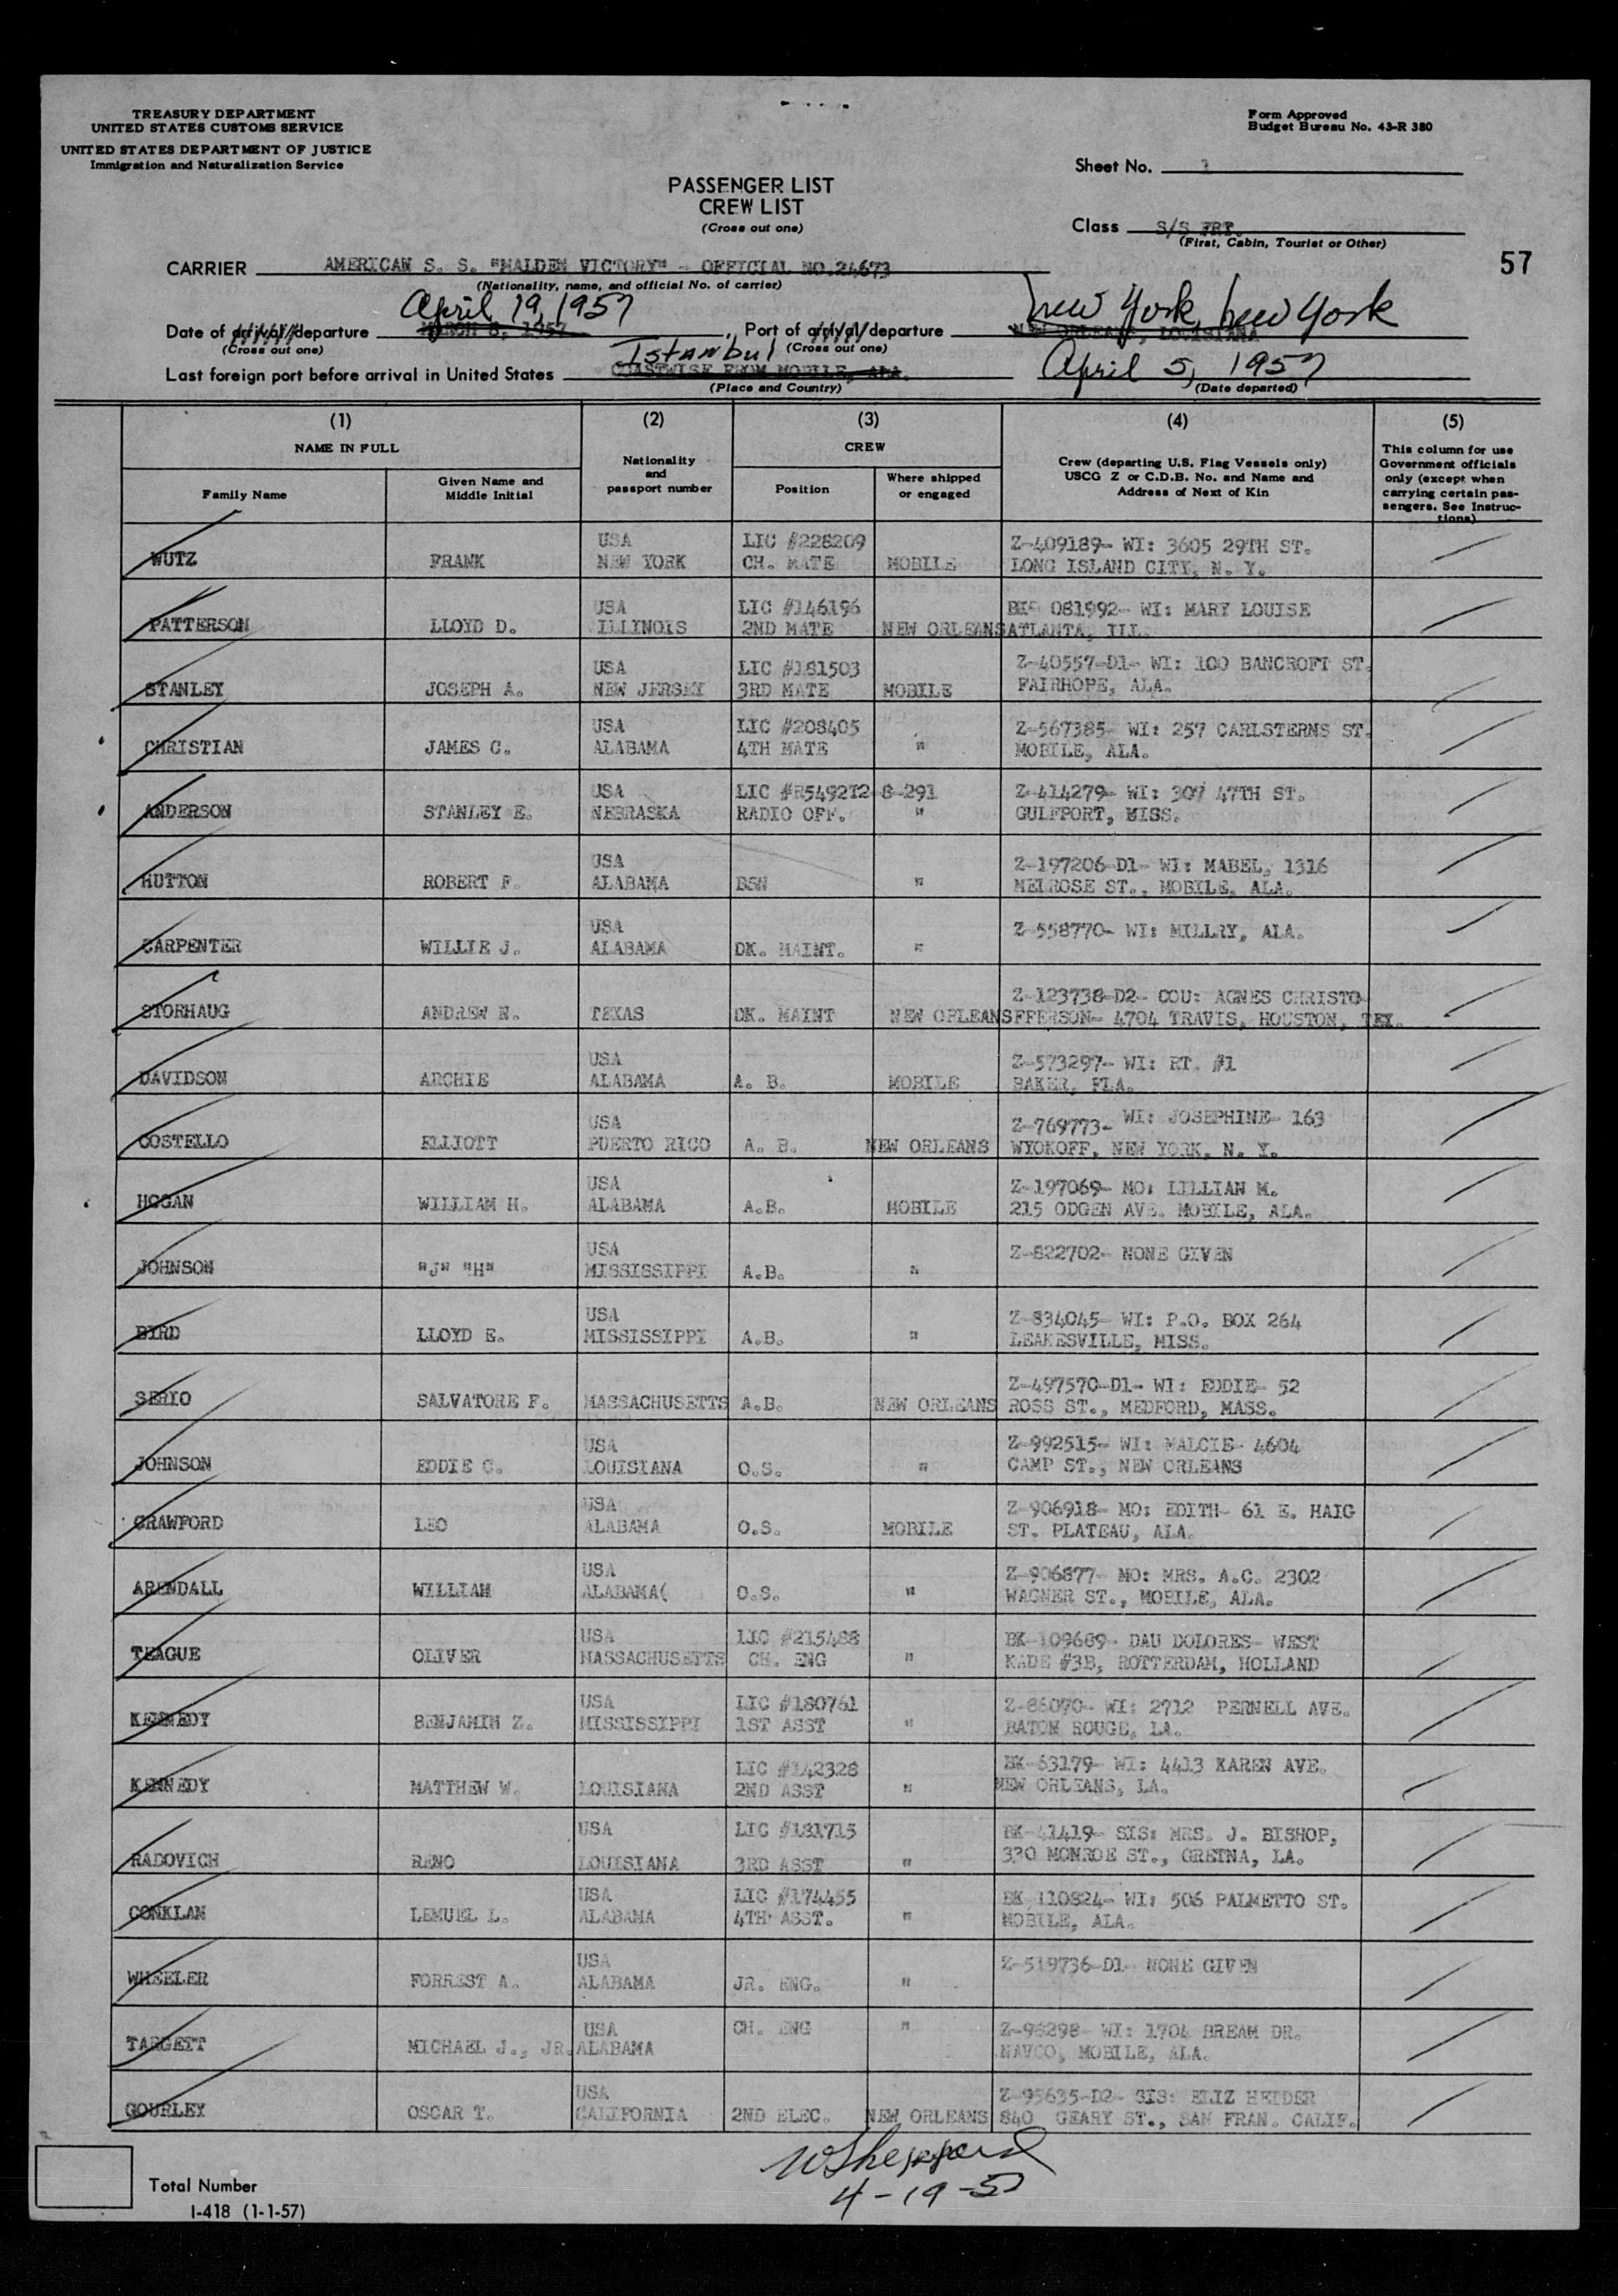 TREASURY DEPARTMENT
UNITED STATES CUSTOMS SERVICE
UNITED STATES DEPARTMENT OF JUSTICE
Immigration and Naturalization Service
Form Approved
Budget Bureau No. 43-R 380
Sheet No. 1
PASSENGER LIST
CREW LIST
(Cross out one)
Class S/S FRT.
(First, Cabin, Tourist or Other)
57
CARRIER AMERICAN S. S. "MALDEN VICTORY" - OFFICIAL NO.24673
(Nationality, name, and official No. of carrier)
April 19, 1957 New York, New York
Date of arrival/departure MARCH 8, 1957, Port of arrival/departure NEW ORLEANS, LOUISIANA
(Cross out one) (Cross out one)
Istanbul April 5, 1957
Last foreign port before arrival in United States COASTWISE FROM MOBILE, ALA.
(Place and Country) (Date departed)
(1) (2) (3) (4) (5)
NAME IN FULL Nationality and passport number CREW Crew (departing U.S. Flag Vessels only) USCG Z or C.D.B. No. and Name and Address of Next of Kin This column for use Government officials only (except when carrying certain passengers. See Instructions)
Family Name Given Name and Middle Initial Position Where shipped or engaged
USA LIC #228209 Z-409189- WI: 3605 29TH ST.
WUTZ FRANK NEW YORK CH. MATE MOBILE LONG ISLAND CITY, N. Y.
USA LIC #146196 BK- 081992- WI: MARY LOUISE
PATTERSON LLOYD D. ILLINOIS 2ND MATE NEW ORLEANS ATLANTA, ILL.
USA LIC #181503 Z-40557-D1- WI: 100 BANCROFT ST.
STANLEY JOSEPH A. NEW JERSEY 3RD MATE MOBILE FAIRHOPE, ALA.
USA LIC #208405 Z-567385- WI: 257 CARLSTERNS ST.
CHRISTIAN JAMES C. ALABAMA 4TH MATE " MOBILE, ALA.
USA LIC #R549212 8-291 Z-414279- WI: 307 47TH ST.
ANDERSON STANLEY E. NEBRASKA RADIO OFF. " GULFPORT, MISS.
USA Z-197206-D1- WI: MABEL, 1316
HUTTON ROBERT F. ALABAMA BSN " MELROSE ST., MOBILE, ALA.
USA Z-558770- WI: MILLRY, ALA.
CARPENTER WILLIE J. ALABAMA DK. MAINT. "
Z-123738-D2- COU: AGNES CHRISTO-
STORHAUG ANDREW N. TEXAS DK. MAINT NEW ORLEANS FFERSON- 4704 TRAVIS, HOUSTON, TEX.
USA Z-573297- WI: RT. #1
DAVIDSON ARCHIE ALABAMA A. B. MOBILE BAKER, FLA.
USA Z-769773- WI: JOSEPHINE- 163
COSTELLO ELLIOTT PUERTO RICO A. B. NEW ORLEANS WYOKOFF, NEW YORK, N. Y.
USA Z-197069- MO: LILLIAN M.
HOGAN WILLIAM H. ALABAMA A.B. MOBILE 215 ODGEN AVE. MOBILE, ALA.
USA Z-822702- NONE GIVEN
JOHNSON "J" "H" MISSISSIPPI A.B. "
USA Z-834045- WI: P.O. BOX 264
BYRD LLOYD E. MISSISSIPPI A.B. " LEAKESVILLE, MISS.
Z-497570-D1- WI: EDDIE- 52
SERIO SALVATORE F. MASSACHUSETTS A.B. NEW ORLEANS ROSS ST., MEDFORD, MASS.
USA Z-992515- WI: MALCIE- 4604
JOHNSON EDDIE C. LOUISIANA O.S. " CAMP ST., NEW ORLEANS
USA Z-906918- MO: EDITH- 61 E. HAIG
CRAWFORD LEO ALABAMA O.S. MOBILE ST. PLATEAU, ALA.
USA Z-906877- MO: MRS. A.C. 2302
ARENDALL WILLIAM ALABAMA( O.S. " WAGNER ST., MOBILE, ALA.
USA LIC #215488 BK-109689- DAU DOLORES- WEST
TEAGUE OLIVER MASSACHUSETTS CH. ENG " KADE #3B, ROTTERDAM, HOLLAND
USA LIC #180761 Z-86070- WI: 2712 PERNELL AVE.
KENNEDY BENJAMIN Z. MISSISSIPPI 1ST ASST " BATON ROUGE, LA.
LIC #142328 BK-63179- WI: 4413 KAREN AVE.
KENNEDY MATTHEW W. LOUISIANA 2ND ASST " NEW ORLEANS, LA.
USA LIC #181715 BK-41419- SIS: MRS. J. BISHOP,
RADOVICH RENO LOUISIANA 3RD ASST " 330 MONROE ST., GRETNA, LA.
USA LIC #174455 BK 110824- WI: 506 PALMETTO ST.
CONKLAN LEMUEL L. ALABAMA 4TH ASST. " MOBILE, ALA.
USA Z-519736-D1- NONE GIVEN
WHEELER FORREST A. ALABAMA JR. ENG. "
USA CH. ENG " Z-98298- WI: 1704 BREAM DR.
TARGETT MICHAEL J., JR. ALABAMA NAVCO, MOBILE, ALA.
USA Z-95635-D2- SIS: ELIZ HELDER
GOURLEY OSCAR T. CALIFORNIA 2ND ELEC. NEW ORLEANS 840 GEARY ST., SAN FRAN. CALIF.
WSheppard
4-19-57
Total Number
I-418 (1-1-57)